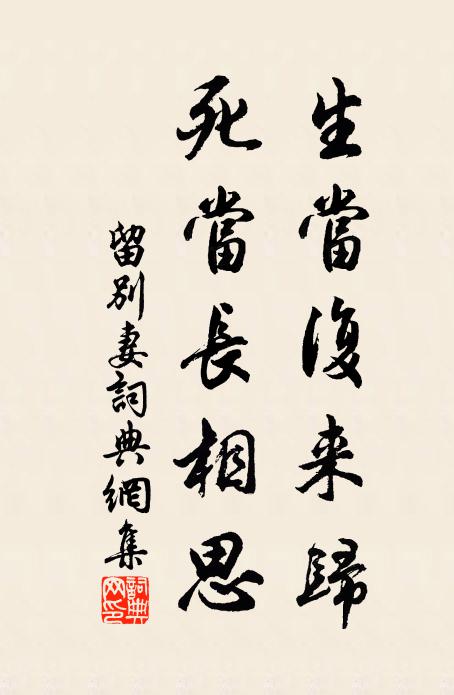 生當復来歸
死當長相思
留別妻詞典網集
詞典网印